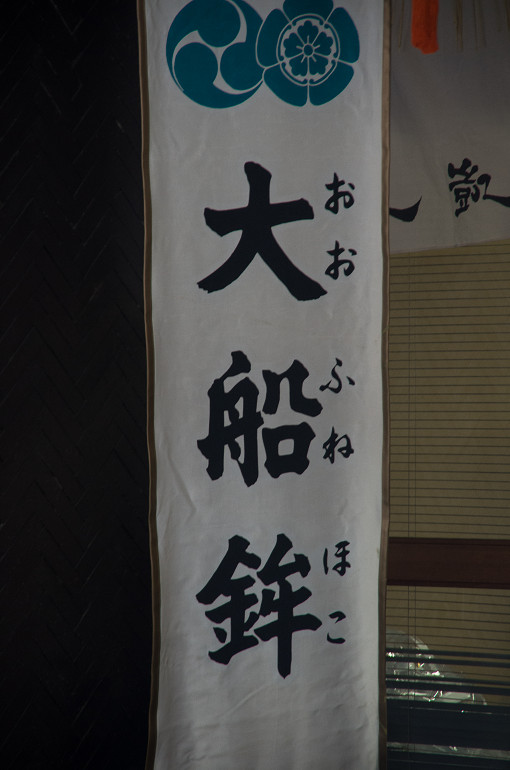 大船鉾
おおふねほこ
凱